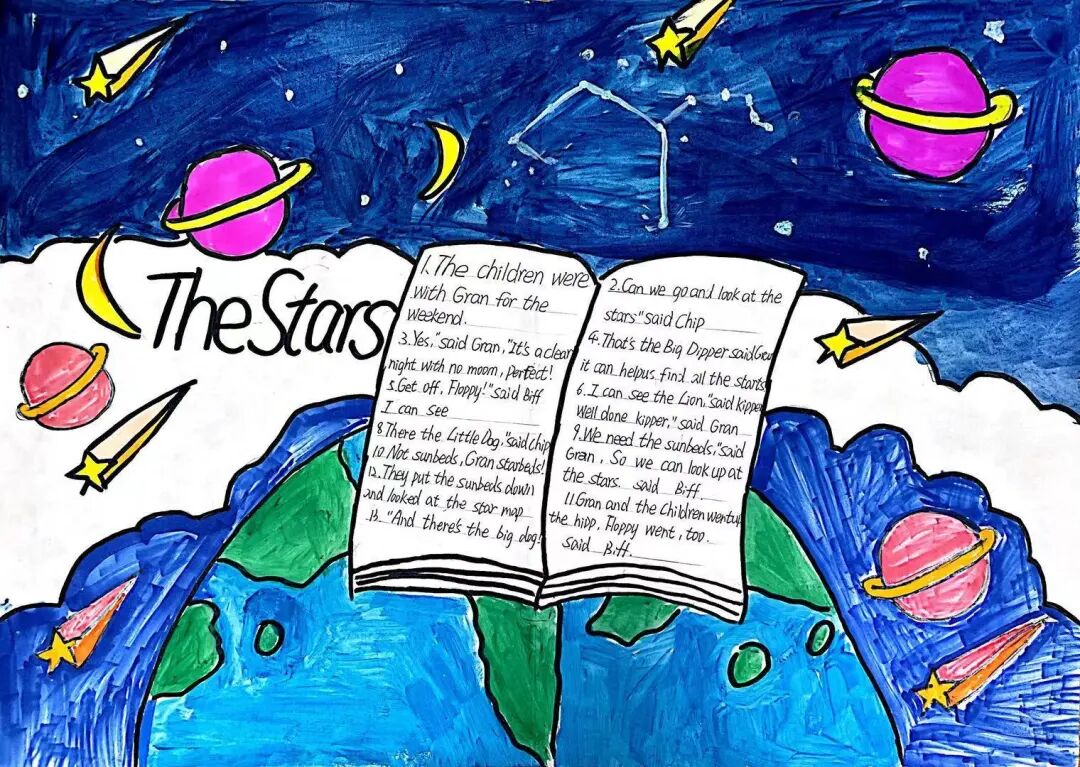 The Stars
1. The children were
with Gran for the
weekend.
3. Yes," said Gran, "It's a clear
night with no moom, perfect!
5. Get off, Floppy!" said Biff
I can see
8. There the Little Dog," said Chip
10. Not sunbeds, Gran starbeds!
12. They put the sunbeds down
and looked at the star map
13. "And there's the big dog!
2. Can we go and look at the
stars" said Chip
4. That's the Big Dipper said Gran
it can help us find all the starts
6. I can see the Lion," said Kipper
Well done kipper," said Gran
9. We need the sunbeds," said
Gran, So we can look up at
the stars. said Biff.
11. Gran and the Children went up
the hipp, Floppy went, too.
said Biff.